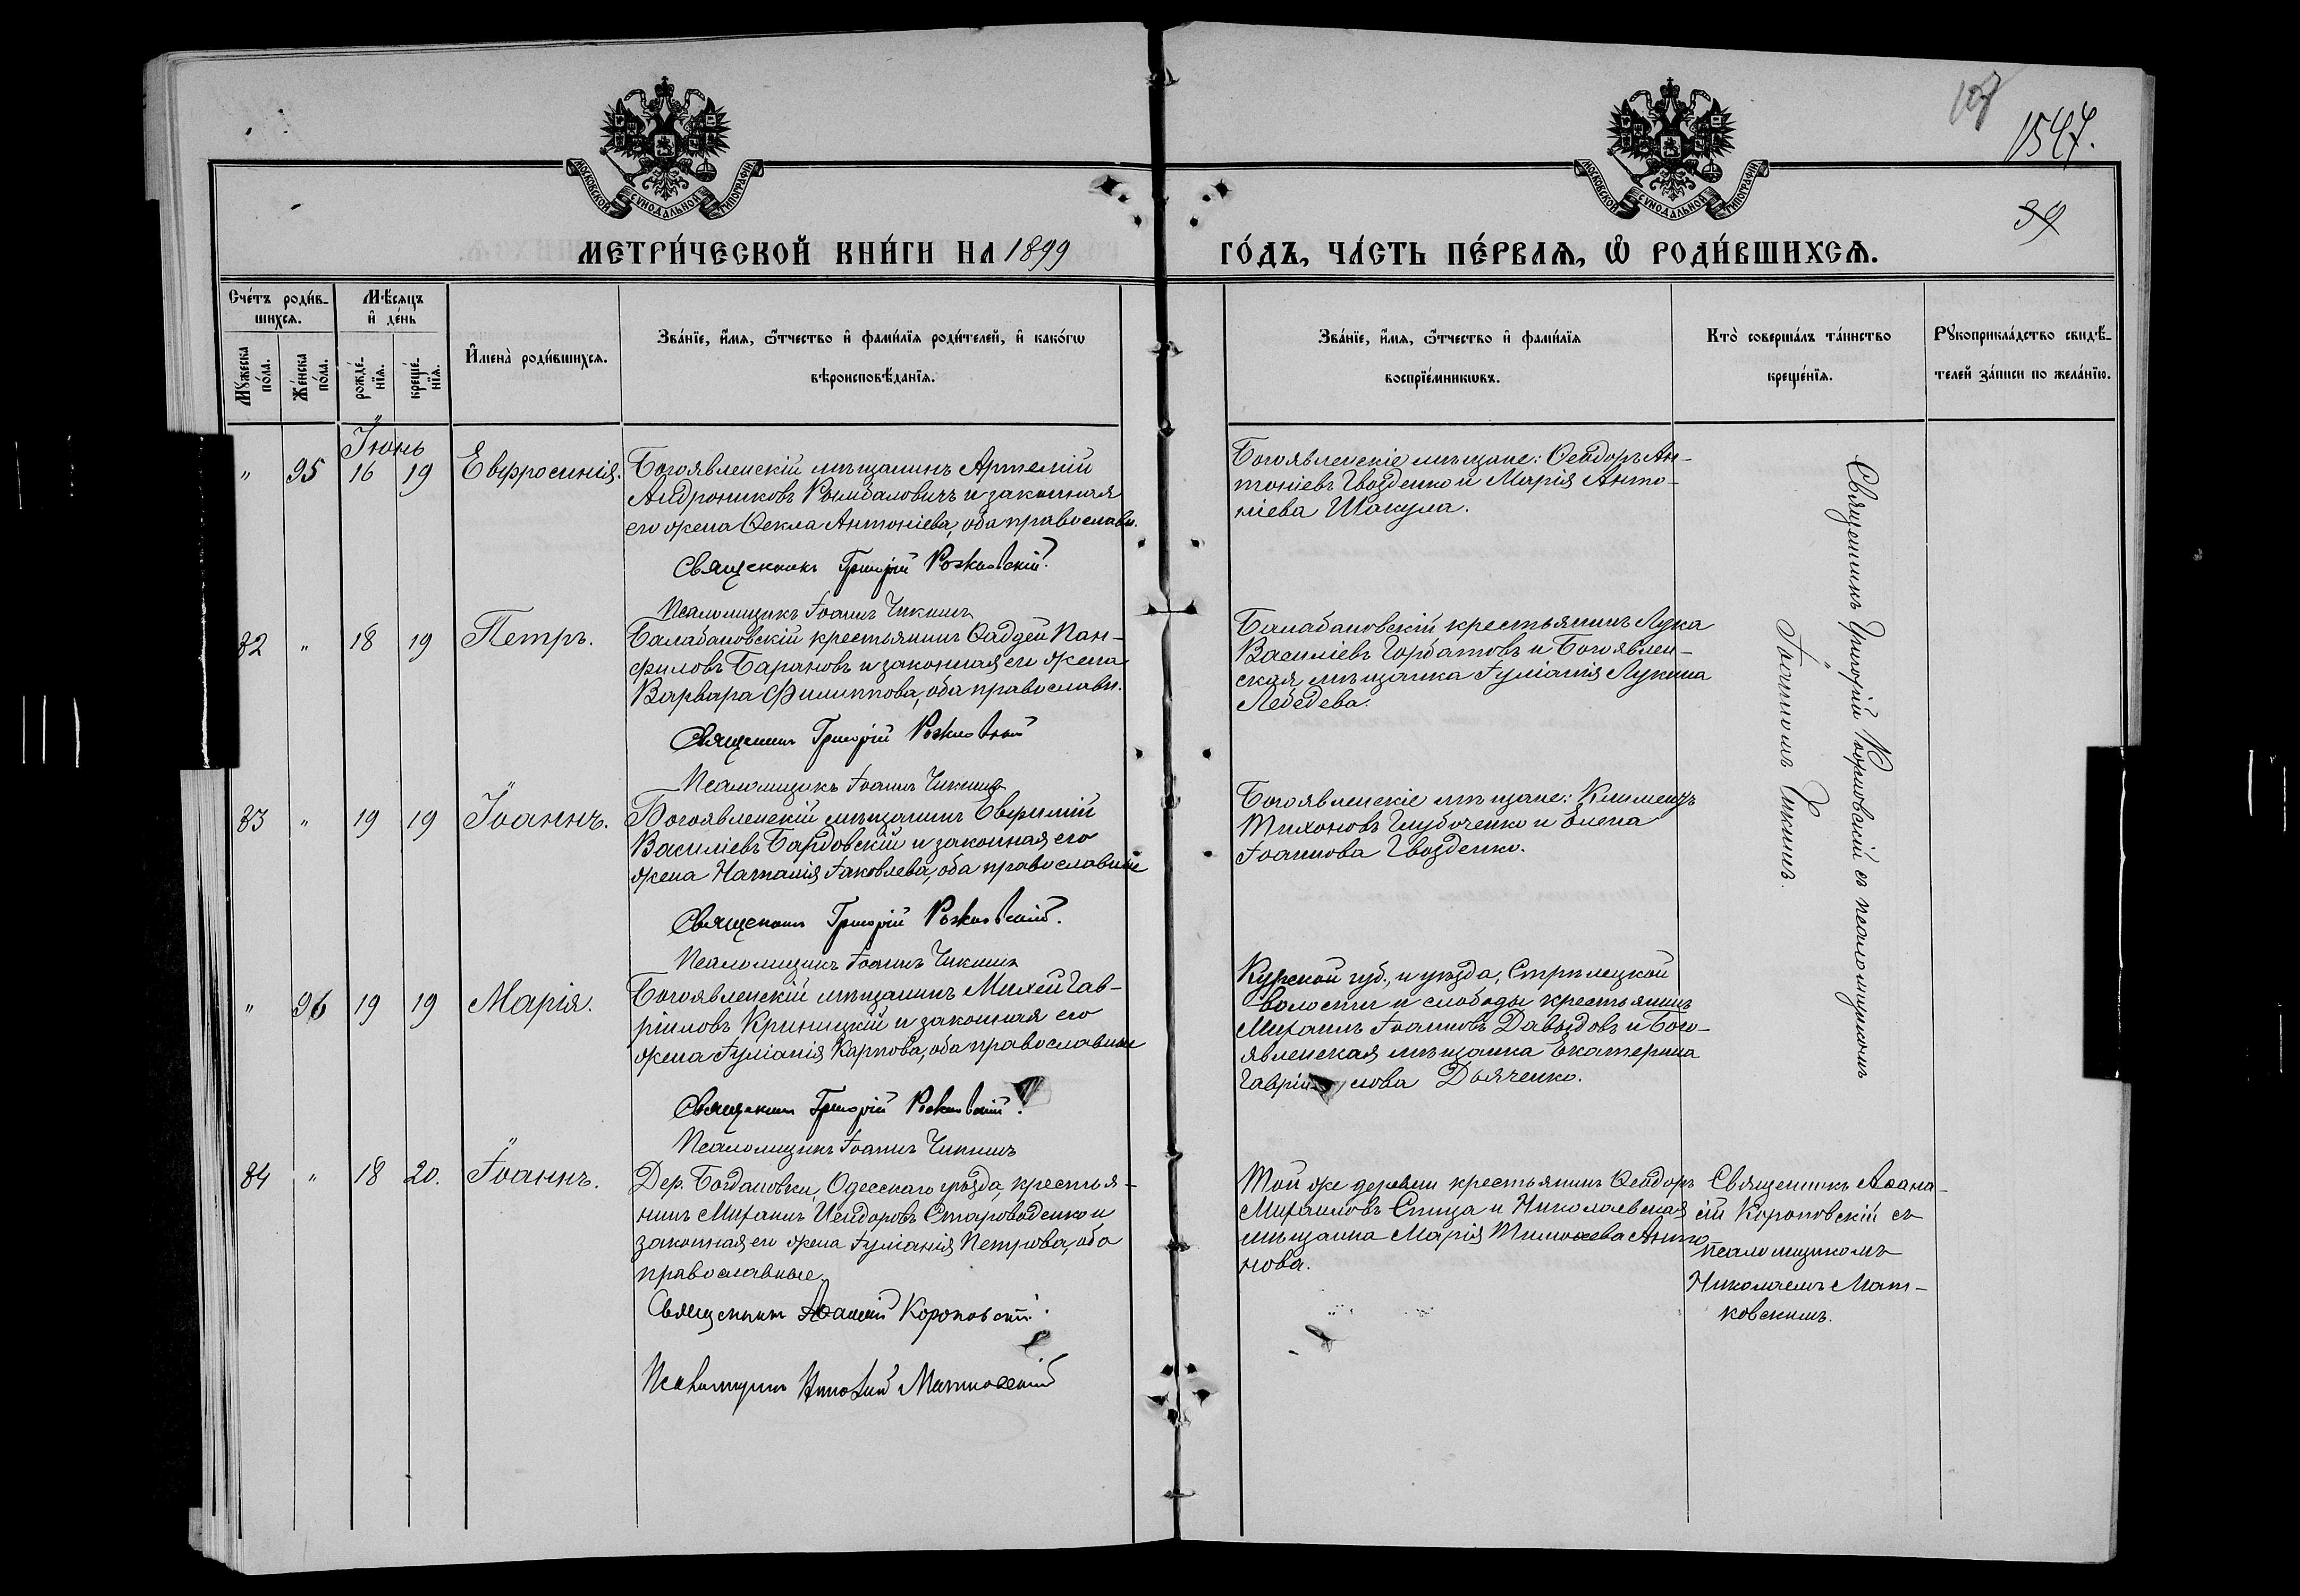 107
1547.
39
МОСКОВСКОЙ СѴНОДАЛЬНОЙ ТИПОГРАФІИ
МОСКОВСКОЙ СѴНОДАЛЬНОЙ ТИПОГРАФІИ
МЕТРИ́ЧЕСКОЙ КНИ́ГИ НА 1899
ГО́ДЪ, ЧА́СТЬ ПЕ́РВАѦ, Ѽ РОДИ́ВШИХСѦ.
Сче́тъ роди́в-
шихсѧ.
Мѣ́сѧцъ
и҆ де́нь
Мꙋ́жеска по́ла.
Же́нска по́ла.
рожде́-нїѧ.
креще́-нїѧ.
И҆мена̀ роди́вшихсѧ.
Зва́нїе, и҆́мѧ, ѿ́чество и҆ фами́лїѧ роди́телей, и҆ како́гѡ
вѣроисповѣ́данїѧ.
Зва́нїе, и҆́мѧ, ѿ́чество и҆ фами́лїѧ
воспрїе́мникѡвъ.
Кто̀ соверша́лъ та́инство
креще́нїѧ.
Рꙋкоприкла́дство свидѣ́-
телей за́писи по жела́нїю.
Іюнь
" 95 16 19 Евфросинія.
Богоявленскій мѣщанинъ Артемій
Андрониковъ Рымбаловичъ и законная
его жена Ѳекла Антоніева, оба православн.
Священникъ Григорій
Псаломщикъ Іоаннъ Чикинъ
Богоявленскіе мѣщане: Ѳеодоръ Ан-
тоніевъ Гвозденко и Марія Анто-
ніева Шакула.
82 " 18 19 Петръ.
Балабановскій крестьянинъ Ѳаддей Пан-
филовъ Барановъ и законная его жена
Варвара Филиппова, оба православн.
Священникъ Григорій
Псаломщикъ Іоаннъ Чикинъ
Балабановскій крестьянинъ Лука
Василіевъ Горбатовъ и Богоявлен-
ская мѣщанка Іуліанія Лукина
Лебедева.
83 " 19 19 Іоаннъ.
Богоявленскій мѣщанинъ Евфимій
Василіевъ Бардовскій и законная его
жена Наталія Іаковлева, оба православные
Священникъ Григорій
Псаломщикъ Іоаннъ Чикинъ
Богоявленскіе мѣщане: Климентъ
Тихоновъ Глубоченко и Елена
Іоаннова Гвозденко.
" 96 19 19 Марія.
Богоявленскій мѣщанинъ Михей Гав-
ріиловъ Криницкій и законная его
жена Іуліанія Карпова, оба православные
Священникъ Григорій
Псаломщикъ Іоаннъ Чикинъ
Курской губ., и уѣзда, Стрѣлецкой
волости и слободы крестьянинъ
Михаилъ Іоанновъ Давыдовъ и Бого-
явленская мѣщанка Екатерина
Гавріилова Дьяченко.
Священникъ Григорій съ псаломщикомъ
Іоанномъ Чикинъ.
84 " 18 20. Іоаннъ.
Дер. Богдановки, Одесскаго уѣзда, крестья-
нинъ Михаилъ Исидоровъ Староводенко и
законная его жена Іуліанія Петрова, оба
православные.
Священникъ Аѳанасій Короповскій.
Псаломщикъ Николай Матковскій
Той же деревни крестьянинъ Ѳеодоръ
Михаиловъ Спица и Николаевская
мѣщанка Марія Тимоѳеева Анто-
нова.
Священникъ Аѳана-
сій Короповскій съ
псаломщикомъ
Николаемъ Мат-
ковскимъ.